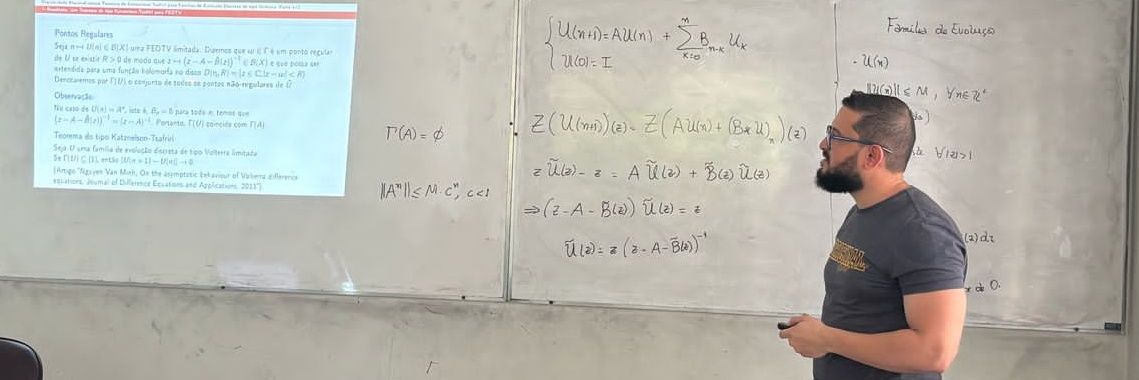 Pontos Regulares
Seja n ↦ U(n) ∈ B(X) uma FEDTV limitada. Dizemos que ω ∈ Γ é um ponto regular
de U se existir R > 0 de modo que z ↦ (z − A − B̃(z))⁻¹ ∈ B(X) e que possa ser
estendida para uma função holomorfa no disco
Denotaremos por Γ(U) o conjunto de todos os pontos não-regulares de Ũ
Observação:
No caso de U(n) = Aⁿ, isto é, Bₙ = 0 para todo n, temos que
(z − A − B̃(z))⁻¹ = (z − A)⁻¹. Portanto, Γ(U) coincide com Γ(A)
Teorema do tipo Katznelson-Tzafriri
Seja U uma família de evolução discreta de tipo Volterra limitada
Se Γ(U) ⊆ {1}, então ‖U(n + 1) − U(n)‖ → 0
(Artigo "Nguyen Van Minh, On the asymptotic behaviour of Volterra difference
equations, Journal of Difference Equations and Applications, 2013")
Γ(A) = ∅
‖Aⁿ‖ ≤ M·cⁿ, c<1
U(n+1) = AU(n) + Σ_{k=0}^{n} B_{n-k} U_k
U(0) = I
Z(U(n+1))(z) = Z(AU(n) + (B*U)_n)(z)
zŨ(z) − z = AŨ(z) + B̃(z)Ũ(z)
⇒ (z − A − B̃(z)) Ũ(z) = z
Ũ(z) = z (z − A − B̃(z))⁻¹
Família de Evolução
- U(n)
‖U(n)‖ ≤ M, ∀n∈Z⁺
∀|z|>1
(z)dz
de 0.